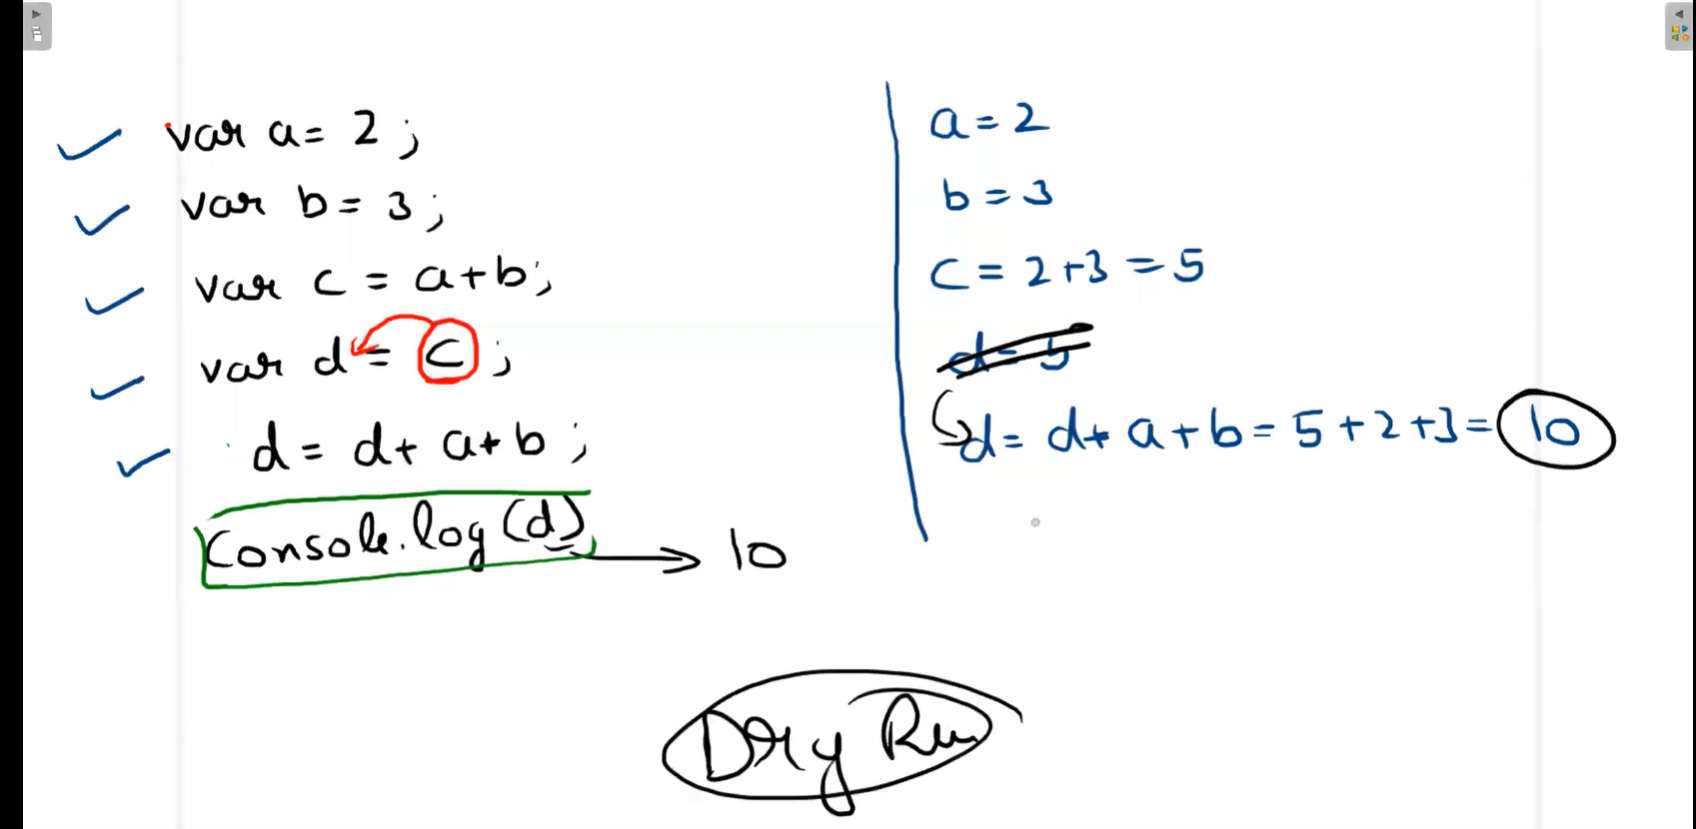 var a = 2 ;
var b = 3 ;
var c = a+b ;
var d = c ;
d = d + a + b ;
Console.log(d)
10
a = 2
b = 3
c = 2+3 = 5
d = 5
d = d + a + b = 5 + 2 + 3 = 10
Dry Run